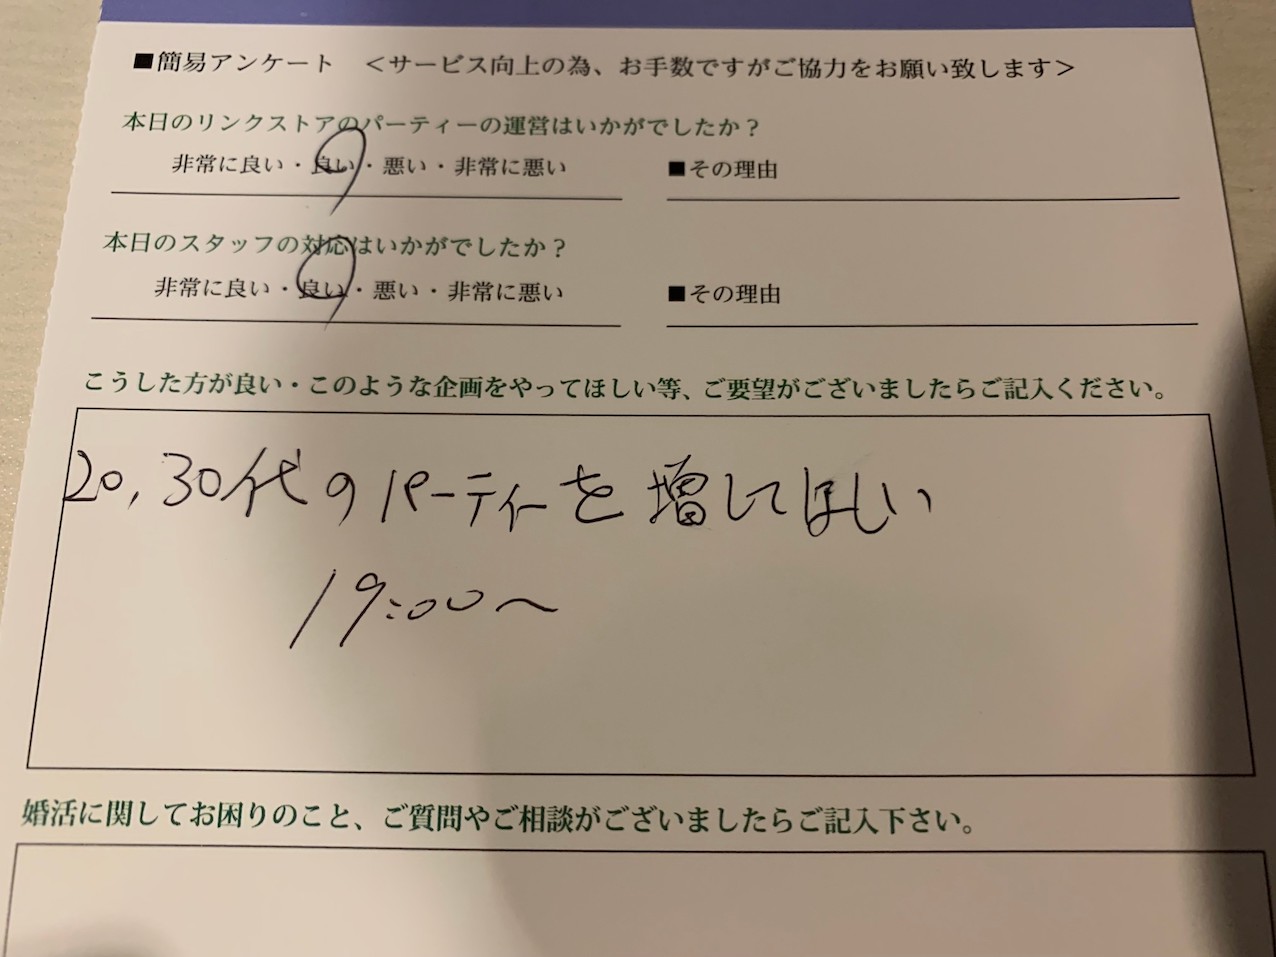 ■簡易アンケート ＜サービス向上の為、お手数ですがご協力をお願い致します＞
本日のリンクストアのパーティーの運営はいかがでしたか？
非常に良い・良い・悪い・非常に悪い ■その理由
本日のスタッフの対応はいかがでしたか？
非常に良い・良い・悪い・非常に悪い ■その理由
こうした方が良い・このような企画をやってほしい等、ご要望がございましたらご記入ください。
20,30代のパーティーを増してほしい
19:00～
婚活に関してお困りのこと、ご質問やご相談がございましたらご記入下さい。